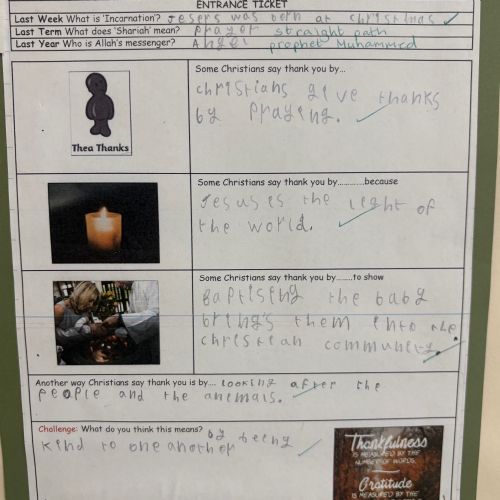 ENTRANCE TICKET
Last Week What is 'Incarnation'? Jesers was born at christmas
Last Term What does 'Shariah' mean? prayer straight path
Last Year Who is Allah's messenger? Angel prophet Muhammed
Thea Thanks
Some Christians say thank you by...
christians give thanks
by praying.
Some Christians say thank you by............because
Jesus is the light of
the world.
Some Christians say thank you by........to show
Baptising the baby
brings them into the
christian community.
Another way Christians say thank you is by... looking after the
people and the animals.
Challenge: What do you think this means? by being
kind to one another
Thankfulness
IS MEASURED BY THE
NUMBER OF WORDS.
Gratitude
IS MEASURED BY THE